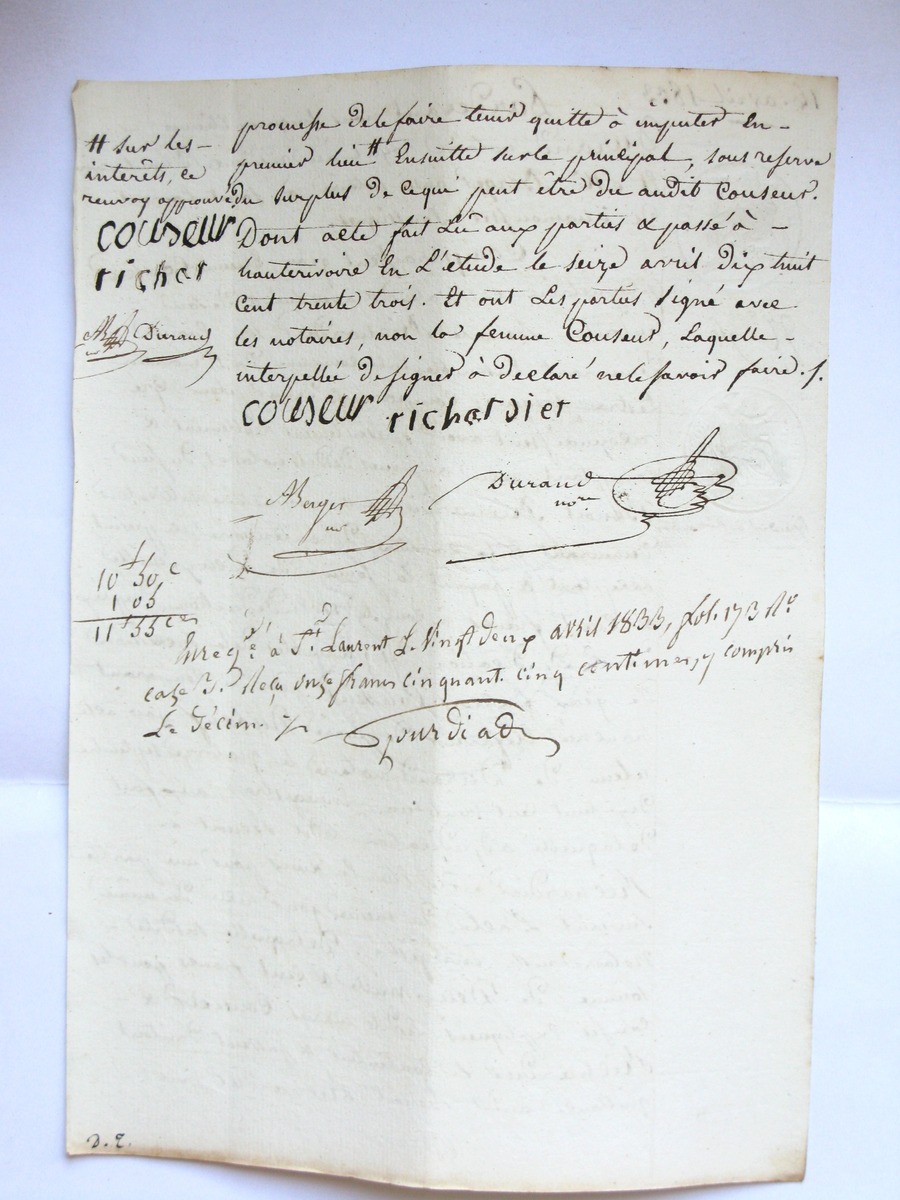 # sur les-
intérêts, ce
renvoy approuvé
couseur
richar
Durand
promesse de le faire tenir quitte à imputer En-
premier lieu # Ensuitte sur le principal, sous reserve
du surplus de ce qui peut être du audit Couseur.
Dont acte fait Lû aux parties & passé à -
hauterivoire En L'étude le seize avril dix huit
Cent trente trois. Et ont Les parties Signé avec
les notaires, non la femme Couseur, Laquelle -
interpellée de signer à declaré ne le savoir faire./.
couseur richardier
ABerger
no
Durand
nore
10f 50c
1 05
11f 55ces
Enregé à St. Laurent Le Vingt deux avril 1833, fol. 173 Ro
case 3. Reçu onze francs cinquante cinq centimes, y compris
Le Décime
D. E.